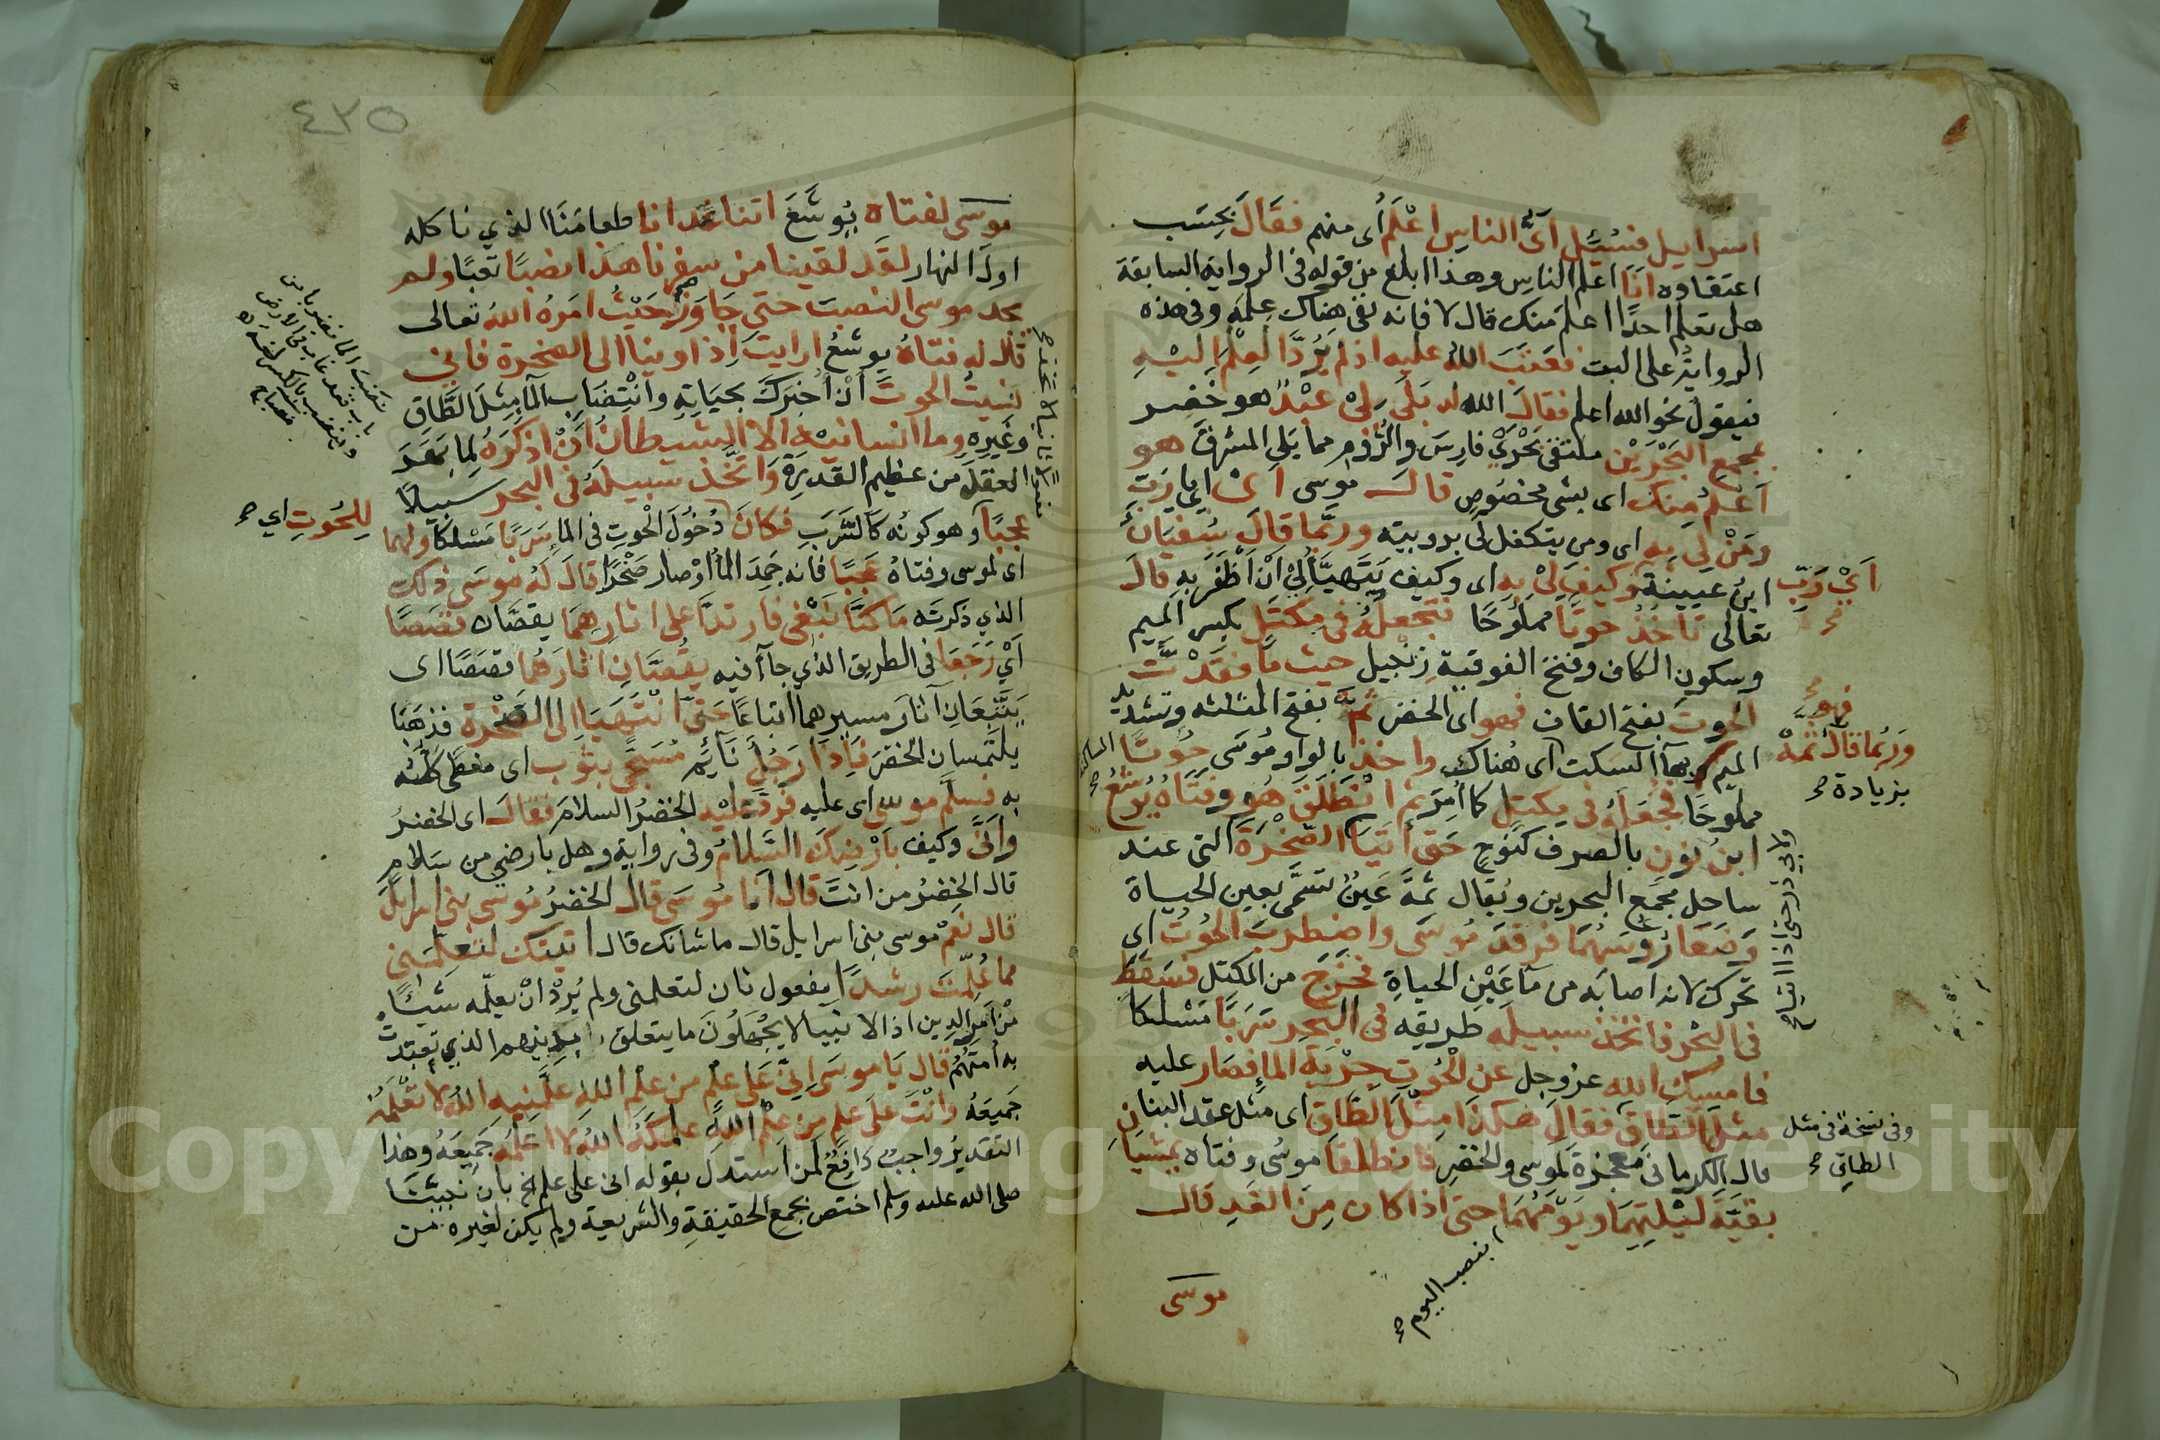 اسرايل فسُئِل اَىُّ الناسِ اعْلَم اى منهم فقَالَ بحسَب
اعتقاده انَا اعلم الناسِ وهذا ابلغ من قوله فى الرواية السابقة
هل تعلم احدًا اعلم منك قال لا فانه نفى هناك عِلمَه وفى هذه
الروايةُ على البت فعَتَبَ اللهُ عليه اذ لم يَرُدَّ العِلْمَ اِليْهِ
فيقول نحو الله اعلم فقالَ الله له بَلَى لِىْ عبْدٌ هو خَضِر
بمجمع البَحْرَيْن ملتقى بَحْرَيْ فارِسَ والرُّوم مما يَلى المشرق هو
اَعْلَمُ مِنك اى بشى مخصُوصٍ قالَ موسى اَىْ اى يا رَبِّ
ومَنْ لِى بِه اى ومن يتكفل لى برويته وربَّما قالَ سُفيَانُ
ابنُ عيينة وكيفَ لِىْ بِهِ اى وكيف يَتَهيَّأُ لِىْ اَنْ اَظفَرَ بِهِ قالَ
اَيْ رَبِّ
تعالى تَاخُذُ حوتًا مملُوحًا فتَجْعَلُهُ فى مِكتَلٍ بكسر الميم
وسكونِ الكاف وفتح الفوقية زنْبيل حيث مَا فقَدْتَّ
الحوتَ بفتح القاف فهو اى الخضر ثمَّ بفتح المثلثه وتشديد
فهوَ
ورُبما قالَ ثَمَّهْ
بزيادة صح
الميم وبهآ السكت اى هُناك واخذ بالواو مُوسَى حُوتًا
مملوحًا فجُعَلهُ فى مِكتلٍ كما اُمِرَ ثم انْطَلَقَ هُوَ وفَتَاهُ يُوشَعُ
ابنُ نونٍ بالصرف كنُوحٍ حَتى أتَيَا الصَّخْرَةَ التى عند
ساحِلِ مجمَع البحرين ويُقال ثمَّةَ عَينٌ تسَمَّى بعين الحياة
وَضَعَا رُوُسَهُمَا فرقدَ مُوسَى واضطربَ الحُوْتُ اى
تحرك لانه اصابَه من مآ عَيْنِ الحياةِ فخَرَجَ من المكتل فسَقَطَ
فى البَحْر فاتخذ سبيلَه طريقه فى البَحر سَرَبًا مَسْلكا
فامسك الله عزوجل عنِ الْحُوتِ جِرْيَةَ المآ فصَار عليه
مثلَ الطَّاقِ فقالَ هكذا مِثْلَ الطَّاق اى مثل عقد البنا
وفى نسخة فى مثل
الطاقِ صح
قال الكرمانى معجزةً لموسى والخضِر فانطلقَا موسُى وفتاه يمشيانِ
بقيَّةَ ليْلتِهِمَا ويَوْمَهُمَا حتى اذا كان مِنَ الغدِ قالَ
بنصب اليوم صح
موسى
٤٣٥
موسى لفتاه يُوشَعَ اتنا غدانا طعامَنَا الذي ناكله
اولَ النهار لقد لقينا من سفرنا هذا نصَبًا تَعَبًا ولم
يجد موسى النصبَ حتى جَاوَزَ حَيْثُ امَرَهُ اللهُ تعالى
قال له فتاهُ يوشعُ ارايتَ اِذ اوينا الى الصخرة فانى
نسِيتُ الحوتَ انْ اُخبرَكَ بحيَاتِهِ وانْتِضَابِ المآ مِثلَ الطَّاقِ
وغيرِه وما انسانيه الا الشيطانُ اَنْ اَذكرَهُ لِمَا بَهَرَ
العقلَ من عظيم القدرةِ وَاتَّخذ سبيلَهُ فى البحر سبيلًا
عجبًا وهو كونُه كَالسَّرَبِ فكانَ دُخُولُ الْحوتِ فى المآ سَرَبًا مَسْلكًا ولهُما
للحُوتِ اي صح
اى لموسى وفتاهُ عجبًا فانه جَمَدَ المآُ اوْ صار صَخْرًا قالَ لهُ مُوسَى ذلك
الذي ذكرته مَا كنَّا نَبْغى فارتدَّا على اثارِهِمَا يقصَّان قصَصًا
اَيْ رَجَعَا فى الطريق الذي جاآ فيه يقُصَّانِ اثارَهُما قصَصًا اى
يَتَّبِعَانِ آثارَ مسيرهما اتباعًا حَتَّى انْتَهَيَا اِلى الصَّخْرة فذهَبَا
يلتمسانِ الخضرَ فاِذَا رَجُلٌ نَآئِم مُسَجًّى بثوْب اى مغطًّى كلُّه
به فسلَّم موسى اى عليه فردَّ عليْهِ الخضرُ السلامَ فقالَ اى الخضرُ
وانَّى وكيف بأرْضِكَ السَّلامُ وفى روايةٍ وهل بارضي من سَلامٍ
قال الخضِرُ من انتَ قال انا مُوسَى قال الخضِرُ مُوسَى بنى اسرايلَ
قال نَعَمْ موسى بنى اسرايل قال ما شانك قال اتيتك لتعَلِّمَني
مما عُلِّمْتَ رشدًا مفعول ثان لتعلمنى ولم يُرِدْ انْ يعلّمه شيئًا
مِنْ امْرِ الدِين اذ الانبيا لا يجْهَلُونَ ما يتعلق بدينهم الذي تعبّدتْ
به اُمتُهُم قال يَا موسَى اِنِّى عَلى عِلْم من عِلْم الله علَّمَنِيهِ اللهُ لا تَعْلَمُهُ
جَمِيعَهُ وانْتَ علَى عِلْمٍ مِن عِلْم اللهِ علمكهُ اللهُ لا اعْلَمُهُ جَمِيعَهُ وهذا
التقديرُ واجبٌ دافِعٌ لمن استدل بقوله انى على علم الخ بان نبيّنَا
صلى الله عليه وسلم اختص بجمع الحقيقةِ والشريعة ولم يكن لغيره من